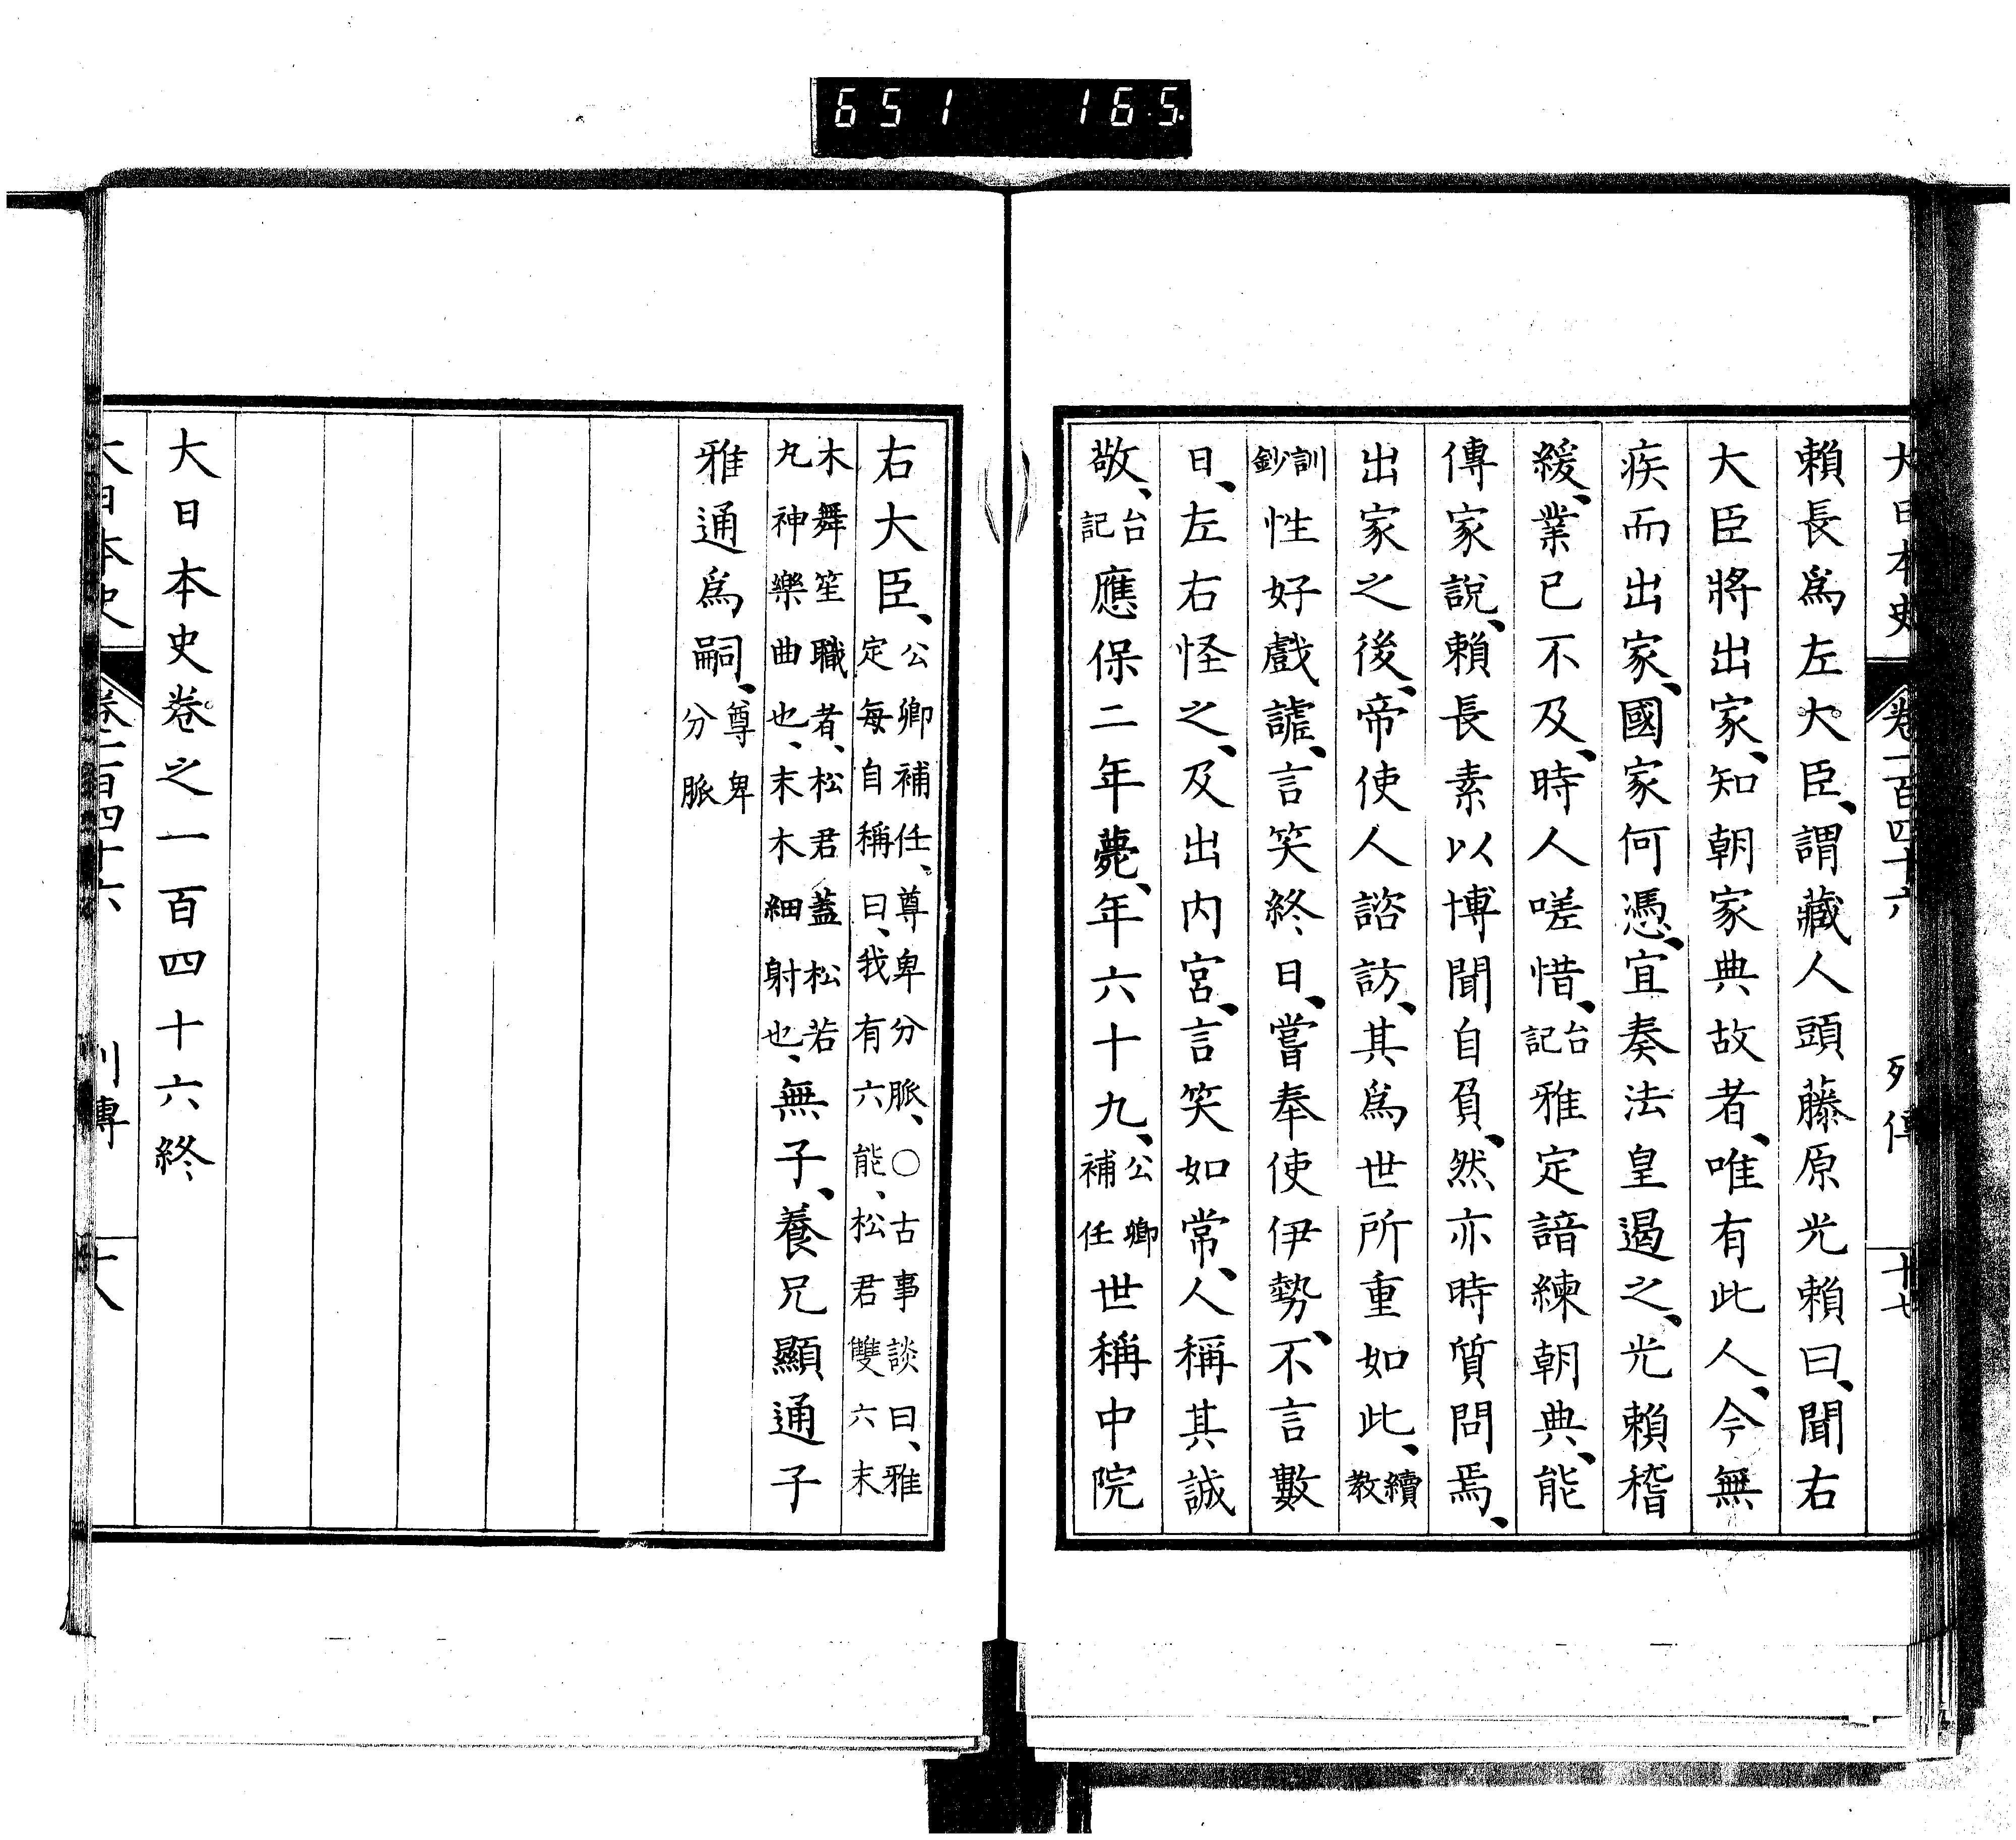 651 16.5.
大日本史 卷一百四十六 列傳 十七
賴長爲左大臣、謂藏人頭藤原光賴曰、聞右
大臣將出家、知朝家典故者、唯有此人、今無
疾而出家、國家何憑、宜奏法皇遏之、光賴稽
緩、業已不及、時人嗟惜、台記雅定諳練朝典、能
傳家說、賴長素以博聞自負、然亦時質問焉、
出家之後、帝使人諮訪、其爲世所重如此、續教
訓鈔性好戲謔、言笑終日、嘗奉使伊勢、不言數
日、左右怪之、及出內宮、言笑如常、人稱其誠
敬、台記應保二年薨、年六十九、公卿補任世稱中院
右大臣、公卿補任、尊卑分脈、○古事談曰、雅定每自稱曰、我有六能、松君雙六末
木舞笙職者、松君蓋松若丸神樂曲也、末木細射也、無子、養兄顯通子
雅通爲嗣、尊卑分脈
大日本史卷之一百四十六終
大日本史 卷一百四十六 列傳 十八